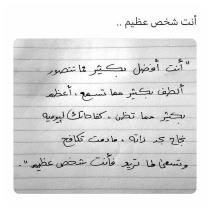 أنت شخص عظيم ..
"أنت أفضل بكثير مما تتصور
ألطف بكثير مما تسمع، أعظم
بكثير مما تظن، كفاحاتك اليومية
نجاح بحد ذاته، مادمت تكافح
وتسعى لما تريد فأنت شخص عظيم".